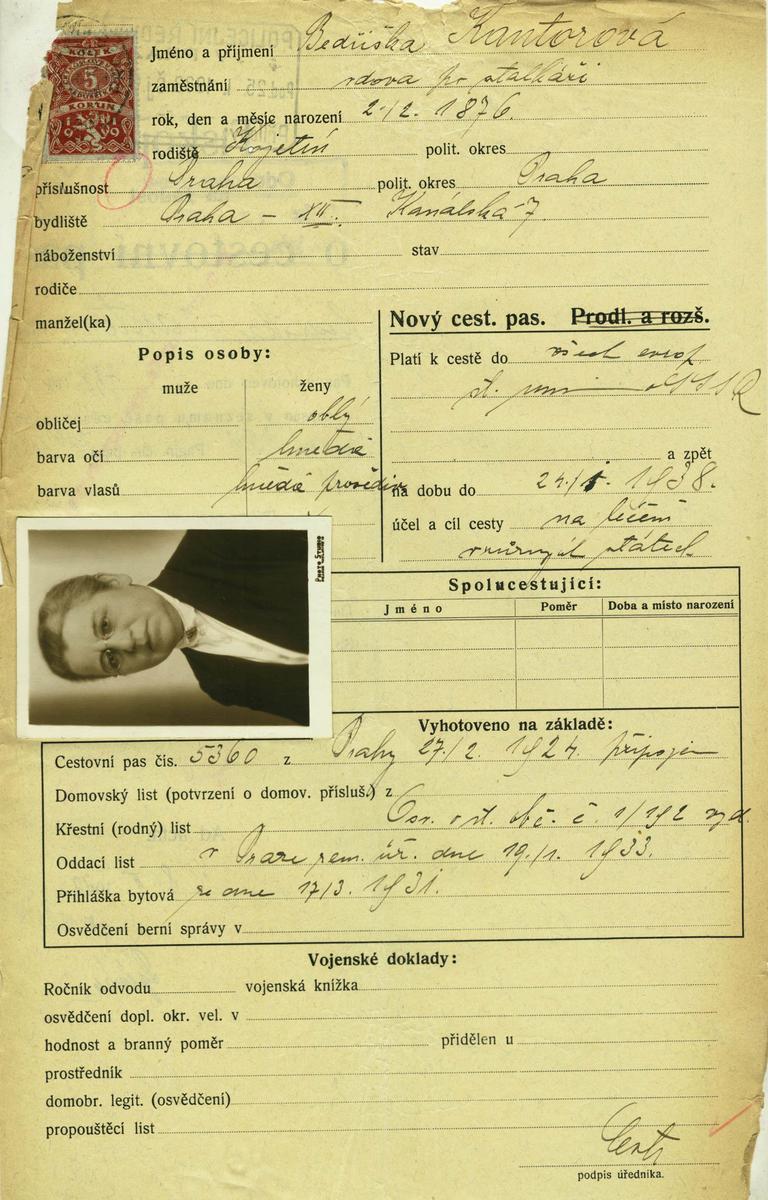 KOLEK
5
KORUN
1919
Jméno a příjmení Bedřiška Kantorová
zaměstnání vdova po
rok, den a měsíc narození 2./2. 1876.
rodiště Kojetín polit. okres
příslušnost Praha polit. okres Praha
bydliště Praha – XII. Kanálská 7
náboženství stav
rodiče
manžel(ka)
Nový cest. pas. Prodl. a rozš.
Popis osoby:
muže ženy
obličej oblý
barva očí hnědá
barva vlasů hnědá
Platí k cestě do všech evrop.
st. SSSR
a zpět
na dobu do 24./1. 1938.
účel a cíl cesty na léčení
v různých státech
Spolucestující:
Jméno Poměr Doba a místo narození
Vyhotoveno na základě:
Cestovní pas čís. 5360 z Prahy 27./2. 1924. připojen
Domovský list (potvrzení o domov. přísluš.) z
Křestní (rodný) list Osv. o st. obč. č. 1/192 vyd.
Oddací list v Praze zem. úř. dne 19./1. 1933.
Přihláška bytová ze dne 17/3. 1931.
Osvědčení berní správy v
Vojenské doklady:
Ročník odvodu vojenská knížka
osvědčení dopl. okr. vel. v
hodnost a branný poměr přidělen u
prostředník
domobr. legit. (osvědčení)
propouštěcí list
podpis úředníka.